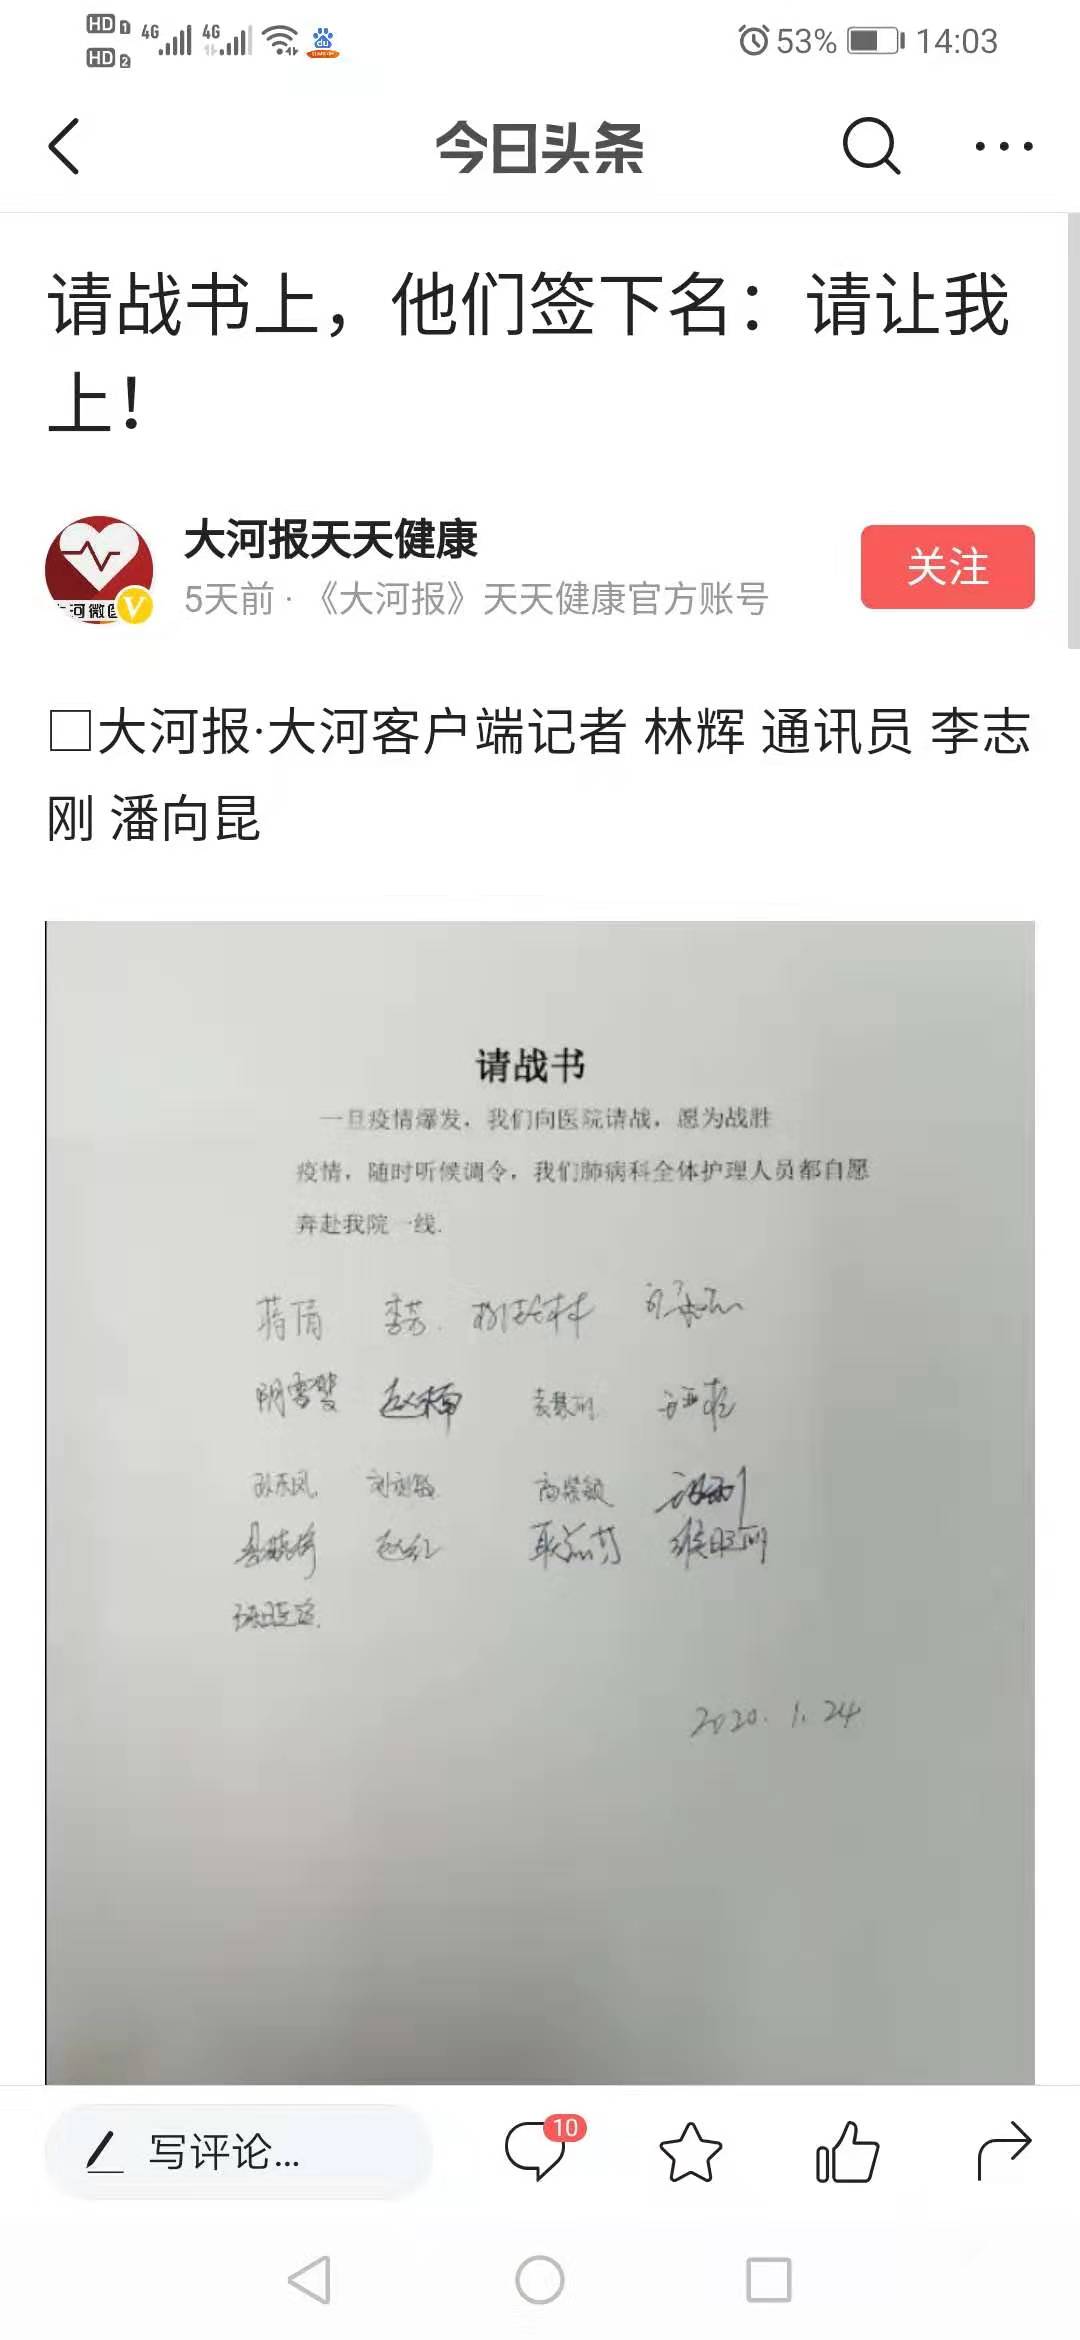 HD 1 4G 4G
HD 2
53% 14:03
今日头条
请战书上，他们签下名：请让我
上！
大河报天天健康
5天前 · 《大河报》天天健康官方账号
关注
□大河报·大河客户端记者 林辉 通讯员 李志
刚 潘向昆
请战书
一旦疫情爆发，我们向医院请战，愿为战胜
疫情，随时听候调令，我们肺病科全体护理人员都自愿
奔赴我院一线.
蒋倩 李芳
阴雪雙 赵楠 袁慧丽
孙东凤 高荣颖
赵红 耿 侯
2020.1.24
写评论...
10